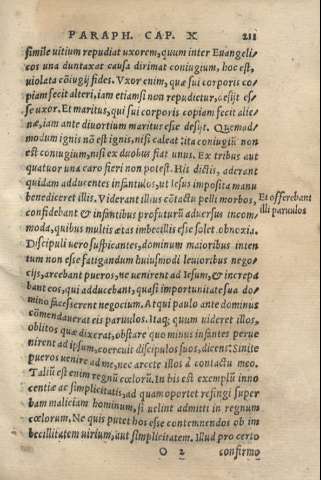 PARAPH. CAP. X 211
simile uitium repudiat uxorem, quum inter Euangeli-
cos una duntaxat causa dirimat coniugium, hoc est,
uiolata cõiugij fides. Vxor enim, quæ sui corporis co-
piam fecit alteri, iam etiamsi non repudietur, desijt es-
se uxor. Et maritus, qui sui corporis copiam fecit alie-
næ, iam ante diuortium maritus esse desijt. Quemad-
modum ignis nõ est ignis, nisi caleat: ita coniugiũ non
est coniugium, nisi ex duobus fiat unus. Ex tribus aut
quatuor una caro fieri non potest. His dictis, aderant
quidam adducentes infantulos, ut Iesus imposita manu
benediceret illis. Viderant illius cõtactu pelli morbos,
Et offerebant
illi paruulos
confidebant & infantibus profuturũ aduersus incom-
moda, quibus multis ætas imbecillis esse solet obnoxia.
Discipuli uero suspicantes, dominum maioribus inten-
tum non esse fatigandum huiusmodi leuioribus nego-
cijs, arcebant pueros, ne uenirent ad Iesum, & increpa-
bant eos, qui adducebant, quasi importunitate sua do-
mino facesserent negocium. Atqui paulo ante dominus
cõmendauerat eis paruulos. Itaq; quum uideret illos,
oblitos quæ dixerat, obstare quo minus infantes perue-
nirent ad ipsum, coercuit discipulos suos, dicens: Sinite
pueros uenire ad me, nec arcete illos à contactu meo.
Taliũ est enim regnũ cœlorũ. In his est exemplũ inno-
centiæ ac simplicitatis, ad quam oportet refingi super
bam maliciam hominum, si uelint admitti in regnum
cœlorum. Ne quis putet hos esse contemnendos ob im
becillitatem uirium, aut simplicitatem. Illud pro certo
O 2 confirmo